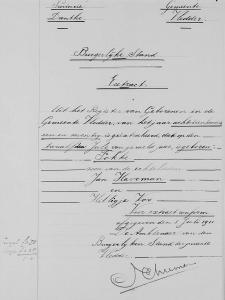 Provincie
Drenthe
Gemeente
Vledder
Burgerlijke Stand
Extract
Uit het Register van Geboorenen in de
Gemeente Vledder, van het jaar achttienhonderd
een en zeventig is gebleken dat op den
Juli van gemeld jaar, is geboren:
Fokke
zoon van de echtelieden
Jan Haveman
en
Hiltje Vos
Voor extract conform
afgegeven den 1 Juli 1911
De Ambtenaar van den
Burgerlijken Stand der gemeente
Vledder.